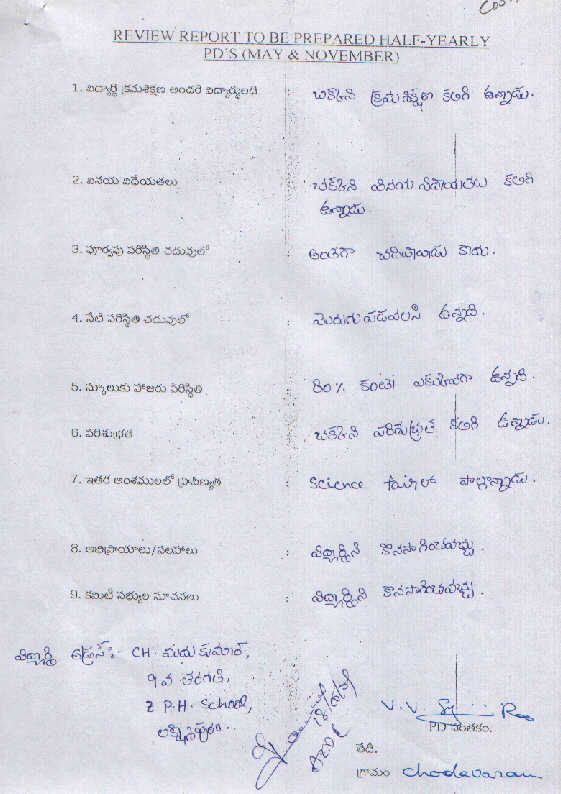 REVIEW REPORT TO BE PREPARED HALF-YEARLY
PD'S (MAY & NOVEMBER)
1. విద్యార్థి క్రమశిక్షణ అందరి విద్యార్థులతో : చక్కని క్రమశిక్షణ కలిగి ఉన్నాడు.
2. వినయ విధేయతలు : చక్కని వినయ విధేయతలు కలిగి
ఉన్నాడు
3. పూర్వపు పరిస్థితి చదువులో : అంతగా చదివేవాడు కాదు.
4. నేటి పరిస్థితి చదువులో : మెరుగు పడవలసి ఉన్నది.
5. స్కూలుకు హాజరు పరిస్థితి : 80% కంటె ఎక్కువగా ఉన్నది.
6. పరిశుభ్రత : చక్కని పరిశుభ్రత కలిగి ఉన్నాడు.
7. ఇతర అంశములలో ప్రావీణ్యత : Science ఫేర్ లో పాల్గొన్నాడు.
8. అభిప్రాయాలు/సలహాలు : విద్యార్థిని కొనసాగించవచ్చు.
9. కమిటీ సభ్యుల సూచనలు : విద్యార్థిని కొనసాగించవచ్చు.
విద్యార్థి అడ్రస్ :- CH. మధు కుమార్,
9వ తరగతి,
Z P.H. School,
లక్ష్మీపురం.
V. V. Rao
PD సంతకం.
తేది.
గ్రామం Chodavaram